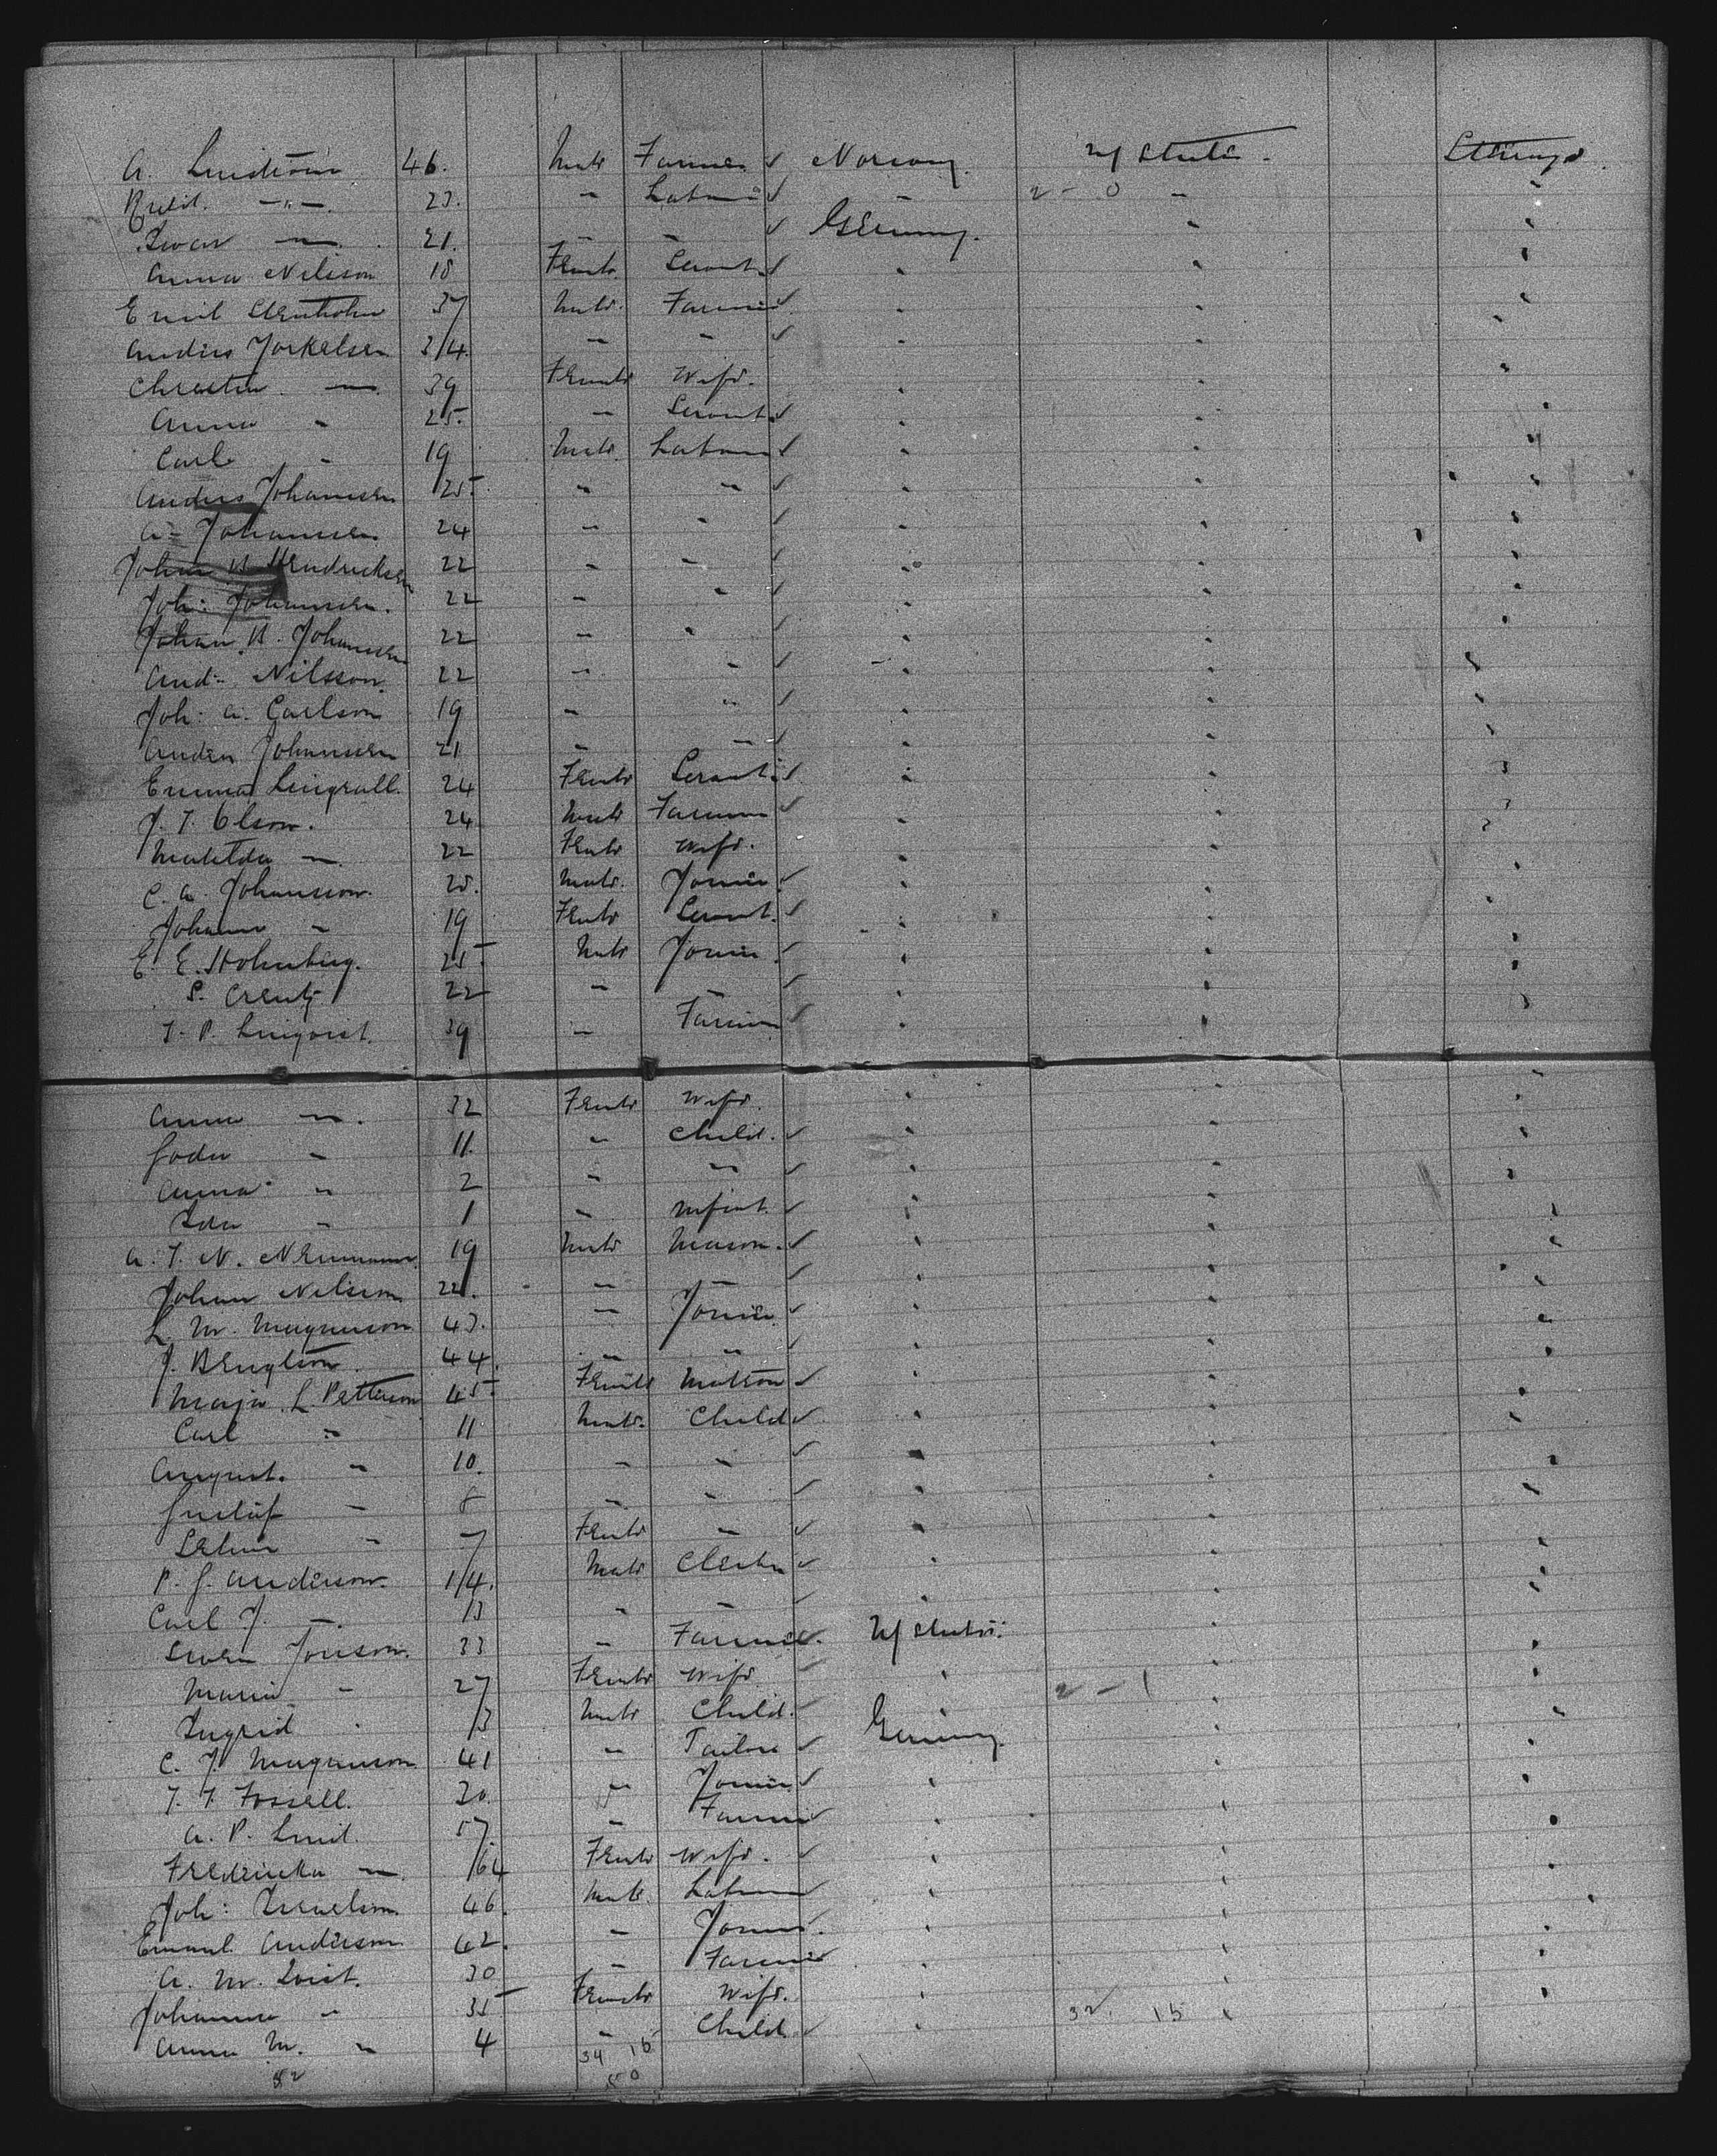 A. Lindstrom 46. Male Farmer ✓ Norway U/States Steerage
— " — 23. " Labourer ✓ " 2 - 0 "
Iwar — 21. " " ✓ Germany " "
Anna Nilsson 18 Female Servant ✓ " " "
Emil Stenholm 37 Male Farmer ✓ " " "
Anders Torkelsen 34 " " ✓ " " "
Christin — 39 Female Wife " " "
Anna " 25 " Servant ✓ " " "
Carl " 19 Male Labourer ✓ " " "
Anders Johansson 25 " " ✓ " " "
A- Johansson 24 " " ✓ " " "
Johan A Hendricksen 22 " " ✓ " " "
Joh: Johansson. 22 " " ✓ " " "
Johan A. Johansson 22 " " ✓ " " "
And:- Nilsson. 22 " " ✓ " " "
Joh: A. Carlson 19 " " ✓ " " "
Anders Johansson 21 " " ✓ " " "
Emma 24 Female Servant ✓ " " "
J. T. Olson. 24 Male Farmer ✓ " " "
Matilda — 22 Female Wife. " " "
C. A. Johansson. Male. Joiner ✓ " " "
Johann " 19 Female Servant. ✓ " " "
E. E. 25 Male Joiner ✓ " " "
S. 22 " " ✓ " " "
J. P. Linqvist. 39 " Farmer ✓ " " "
Anna — 32 Female Wife. " " "
" 11. " Child. ✓ " " "
Anna " 2 " " ✓ " " "
Ida " 1 " Infant. ✓ " " "
A. J. N. Neumann 19 Male Mason. ✓ " " "
Johan Nilsson 22. " " ✓ " " "
L. M. Magnusson 43. " Joiner ✓ " " "
J. Bengtson. 44. " " ✓ " " "
Maja L. Petterson 45 Female Matron ✓ " " "
Carl " 11 Male. Child ✓ " " "
August. " 10. " " ✓ " " "
Gustaf " 8 " " ✓ " " "
" 7 Female " ✓ " " "
P. G. Anderson. 14. Male ✓ " " "
Carl J. — 13 " " ✓ " " "
Swen Jonson. 33 " Farmer ✓ U/States " "
Maria " 27 Female Wife ✓ " 2 - 1 "
Ingrid " 3 Male Child. ✓ " " "
C. J. Magnusson 41 " Tailor ✓ Germany " "
30. " Joiner ✓ " " "
A. P. Lind. 57. " Farmer ✓ " " "
Fredericka — 64 Female Wife. ✓ " " "
Joh: Israelson. 46 Male. Labourer ✓ " " "
Emanl. Anderson 42. " Joiner ✓ " " "
A. M. 30 " Farmer ✓ " " "
Johanna " 35 Female Wife. " " "
Anna M. " 4 " Child. ✓ " 32. 15 "
34 16
52 50